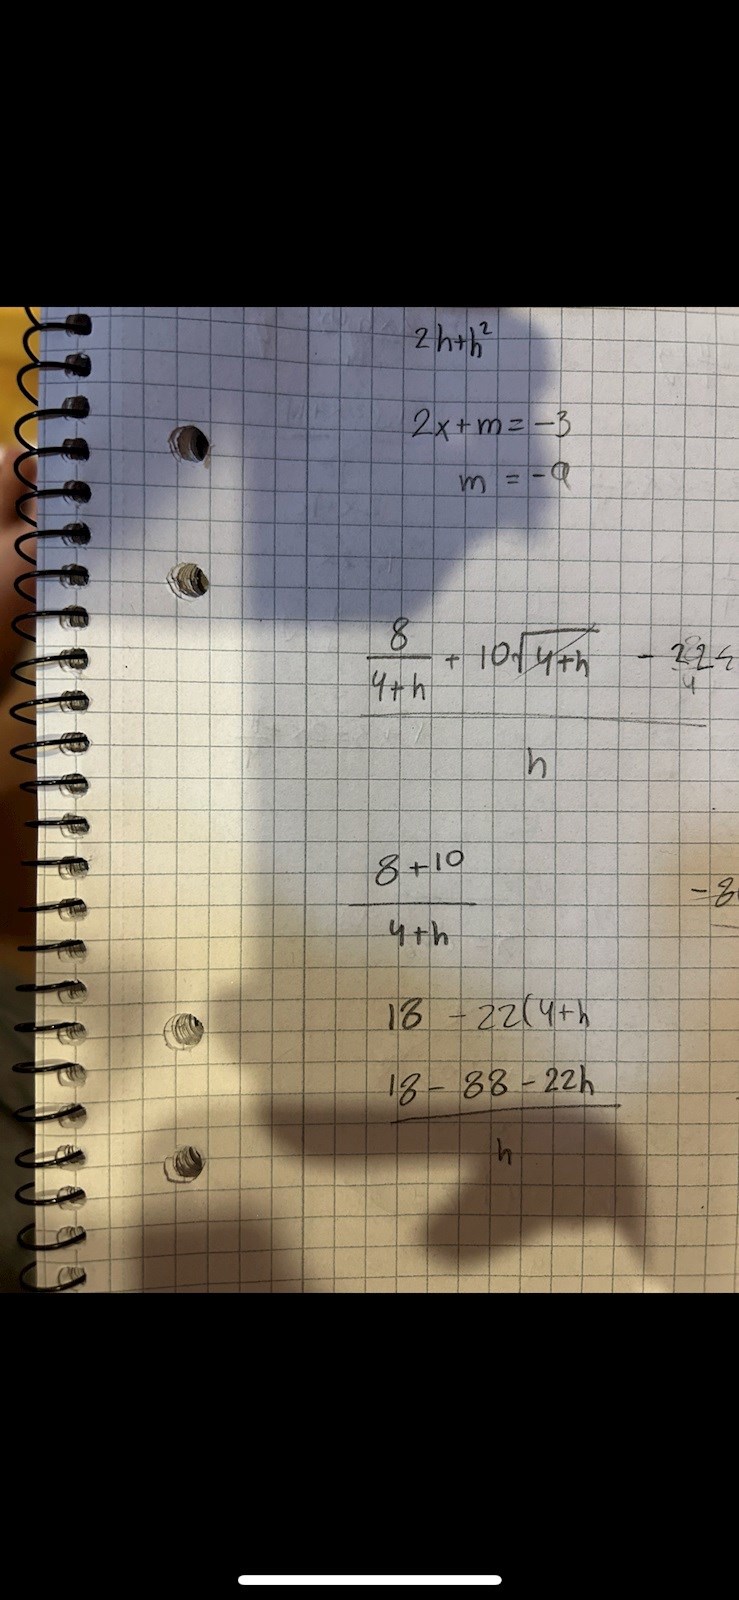 2h+h²
2x+m=-3
m = -9
8/(4+h) + 10√(4+h) - 22
4
h
8+10
4+h
-8
18 - 22(4+h
18 - 88 - 22h
h